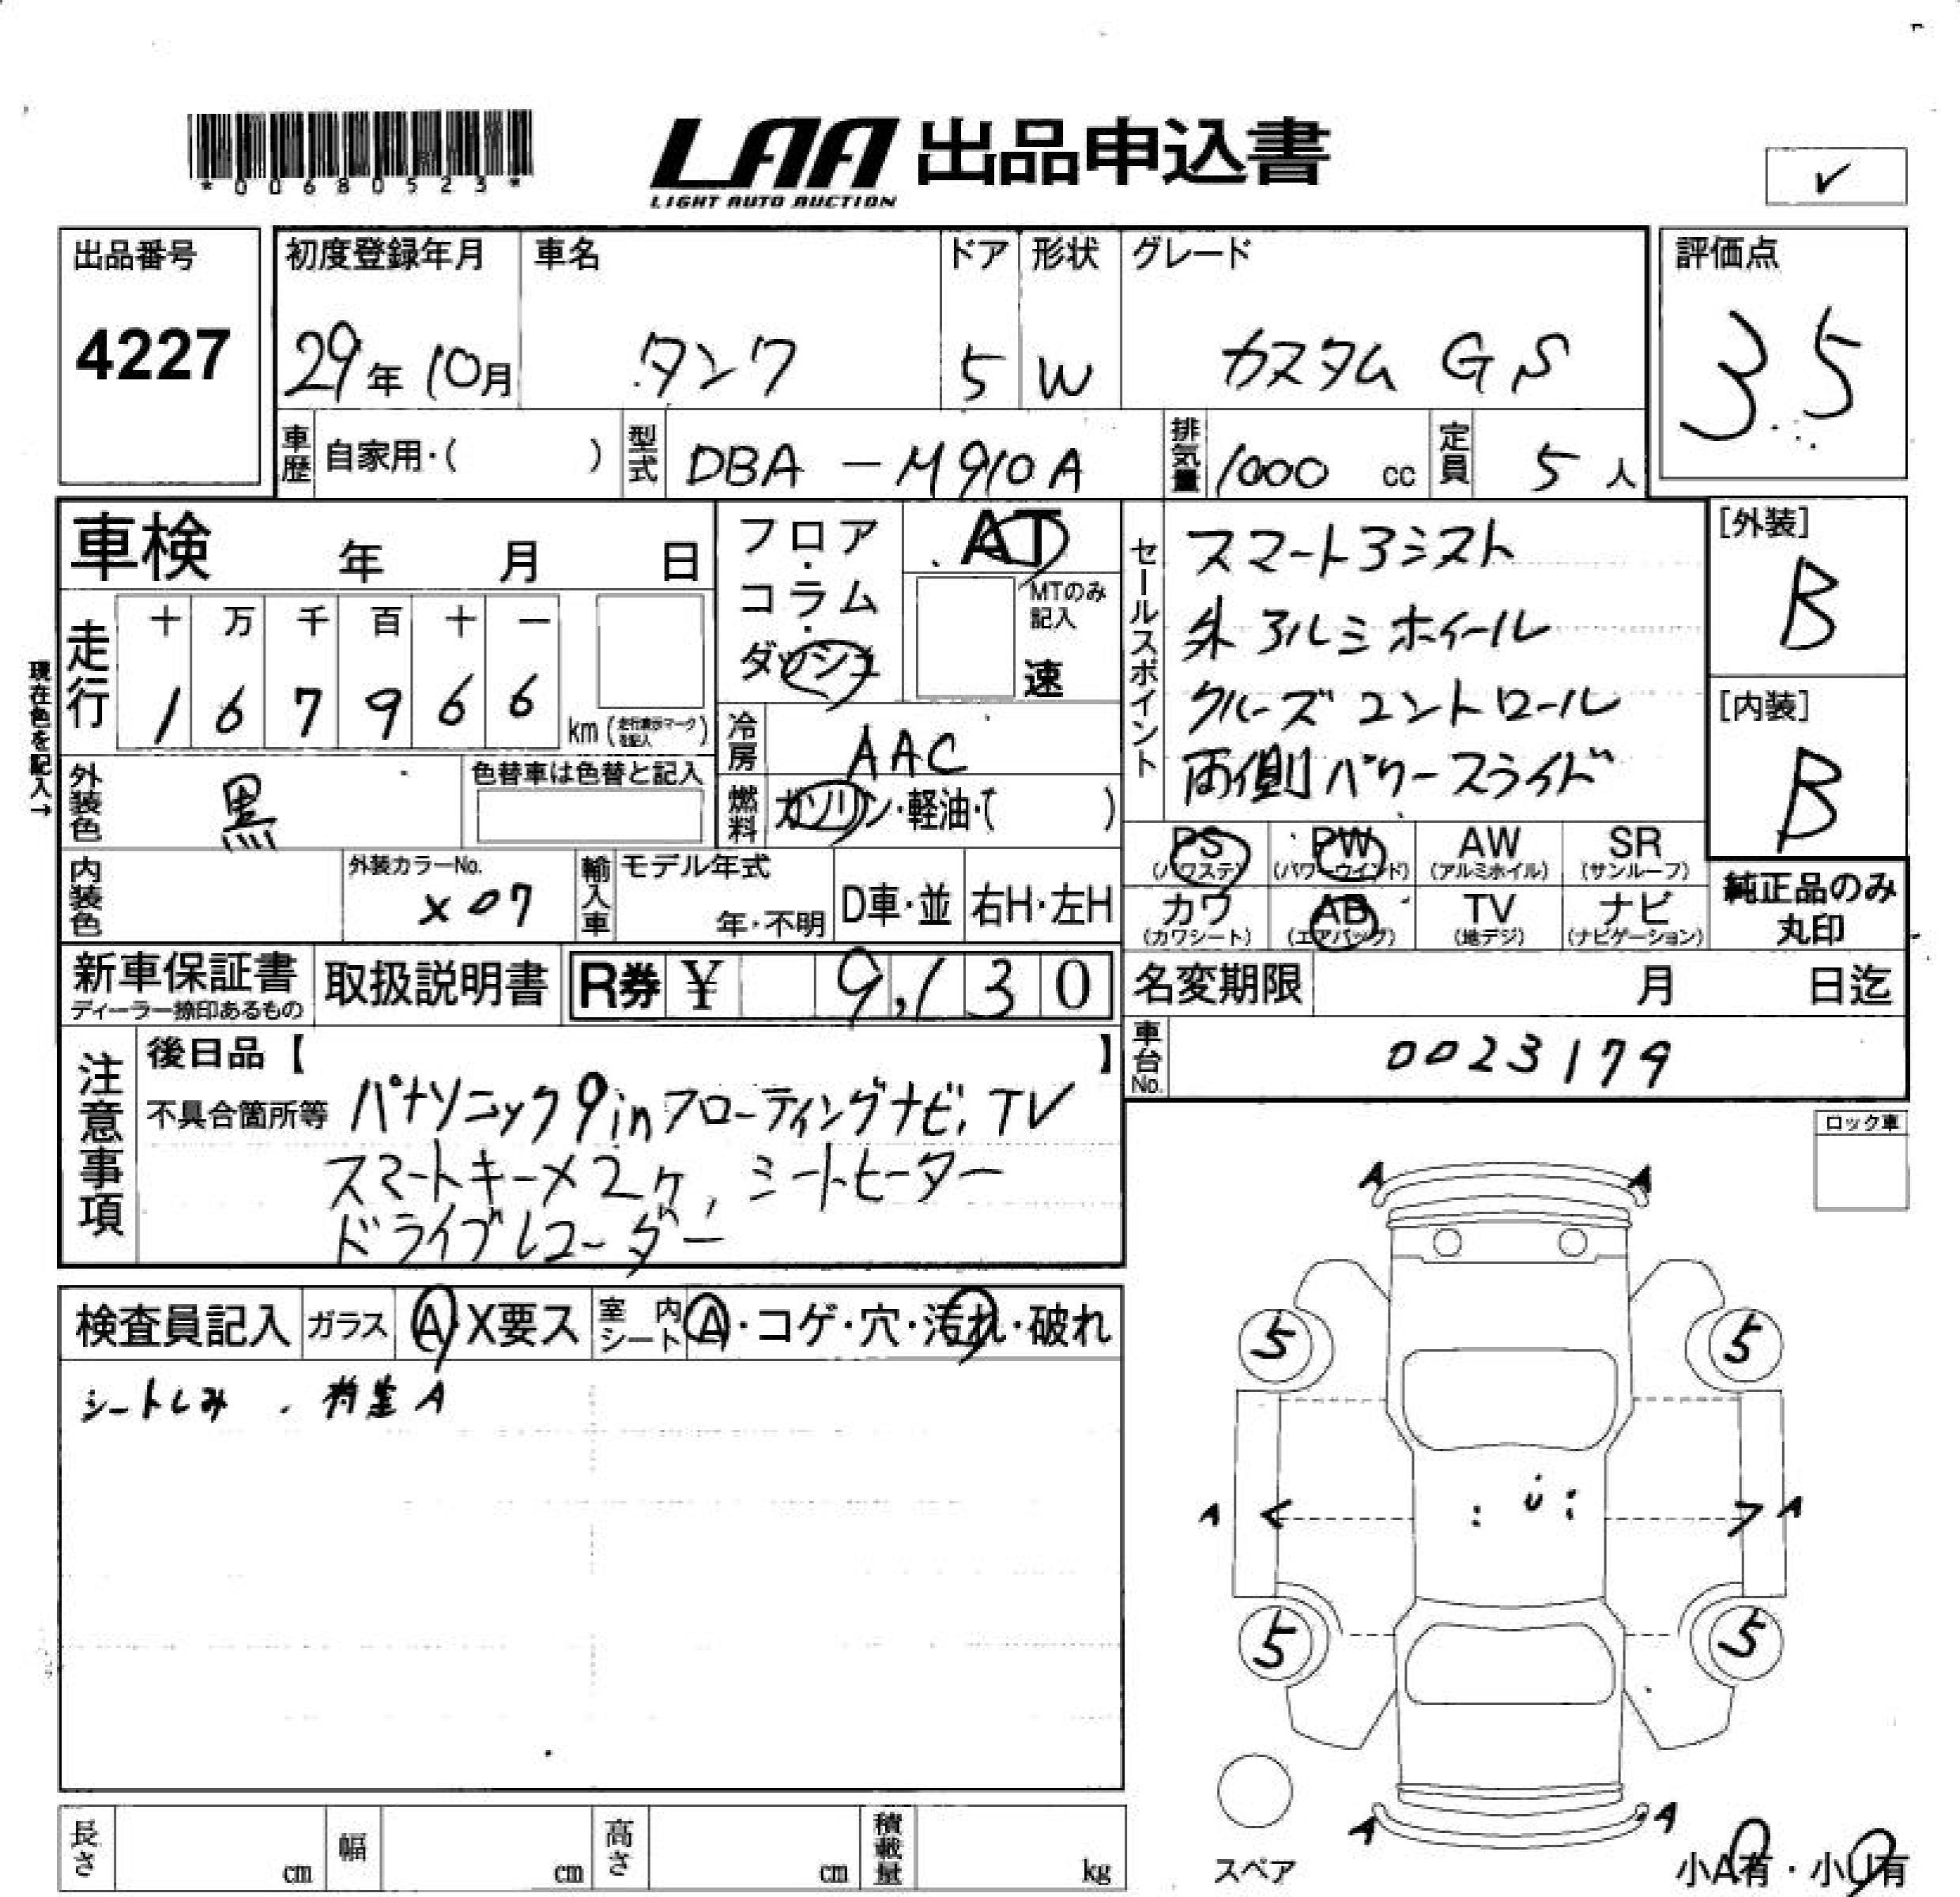 *00680523*
LAA 出品申込書
LIGHT AUTO AUCTION
✓
出品番号
4227
初度登録年月
29年10月
車名
タンク
ドア
5
形状
W
グレード
カスタム GS
評価点
3.5
車歴 自家用・( )
型式 DBA-M910A
排気量 1000 cc
定員 5 人
車検 年 月 日
現在色を記入→
走行
十 万 千 百 十 一
1 6 7 9 6 6
km (走行表示マークを記入)
フロア・コラム・ダッシュ
AT
MTのみ記入
速
冷房 AAC
燃料 ガソリン・軽油・( )
外装色 黒
色替車は色替と記入
内装色
外装カラーNo.
X07
輸入車
モデル年式
年・不明
D車・並
右H・左H
セールスポイント
スマートアシスト
外アルミホイール
クルーズコントロール
両側パワースライド
[外装]
B
[内装]
B
PS
(パワステ)
PW
(パワーウインド)
AW
(アルミホイル)
SR
(サンルーフ)
カワ
(カワシート)
AB
(エアバッグ)
TV
(地デジ)
ナビ
(ナビゲーション)
純正品のみ
丸印
新車保証書
ディーラー捺印あるもの
取扱説明書
R券 ¥ 9,130
名変期限 月 日迄
車台No. 0023179
注意事項
後日品【 】
不具合箇所等 パナソニック9inフローティングナビ, TV
スマートキー×2ケ, シートヒーター
ドライブレコーダー
ロック車
検査員記入
ガラス A・X要ス
室内シート A・コゲ・穴・汚れ・破れ
シートしみ A
A A
5 5
A < > A
5 5
A A
スペア
小A有・小U有
長さ cm
幅 cm
高さ cm
積載量 kg